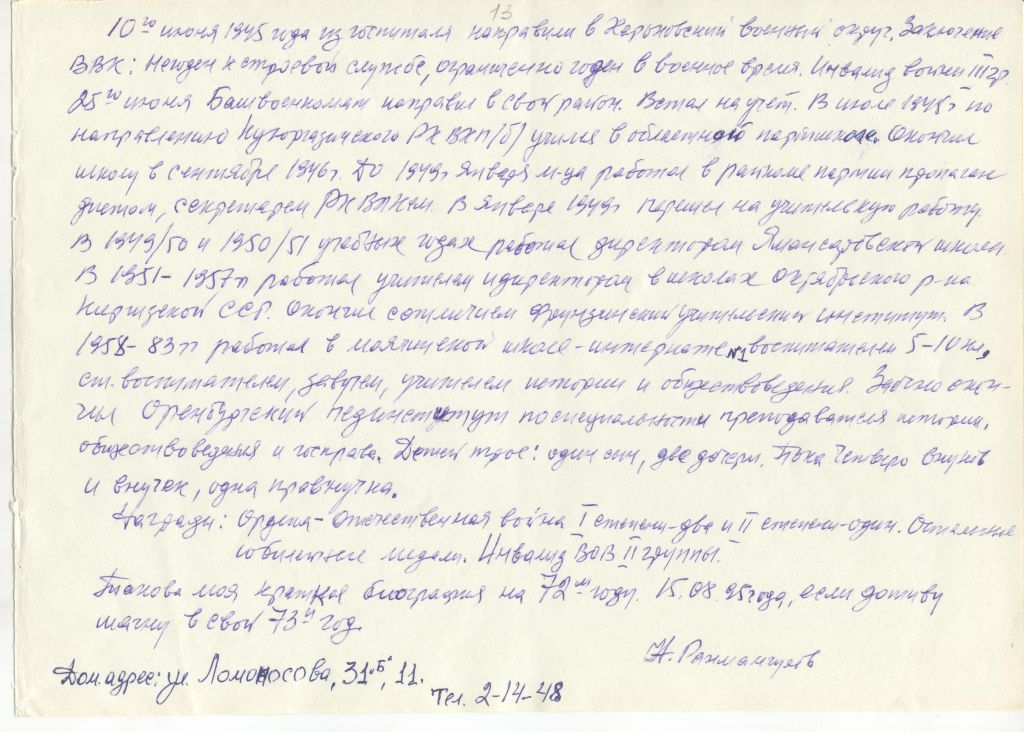 13
10го июня 1945 года из госпиталя направили в Харьковский военный округ. Заключение
ВВК: Негоден к строевой службе, ограниченно годен в военное время. Инвалид войны III гр.
25го июня Башвоенкомат направил в свой район. Встал на учёт. В июле 1945г по
направлению Куюргазинского РК ВКП/б/ учился в областной партшколе. Окончил
школу в сентябре 1946г. До 1949г января м-ца работал в райкоме партии пропаган
дистом, секретарем РК ВЛКСМ. В январе 1949г перешел на учительскую работу.
В 1949/50 и 1950/51 учебных годах работал директором школы.
В 1951-1957гг работал учителем и директором в школах Октябрьского р-на
Киргизской ССР. Окончил с отличием Фрунзенский учительский институт. В
1958-83гг работал в школе-интернате №1 воспитателем 5-10 кл,
ст. воспитателем, завучем, учителем истории и обществоведения. Заочно окон-
чил Оренбургский пединститут по специальности преподавателя истории,
обществоведения и госправа. Детей трое: один сын, две дочери. Пока четверо внуков
и внучек, одна правнучка.
Награды: Ордена-Отечественная война I степени-два и II степени-один. Остальные
юбилейные медали. Инвалид ВОВ II группы.
Такова моя краткая биография на 72м году. 15.08.95 года, если доживу
шагну в свой 73й год.
Н. Рахмангулов
Дом. адрес: ул. Ломоносова, 31"Б", 11.
Тел. 2-14-48